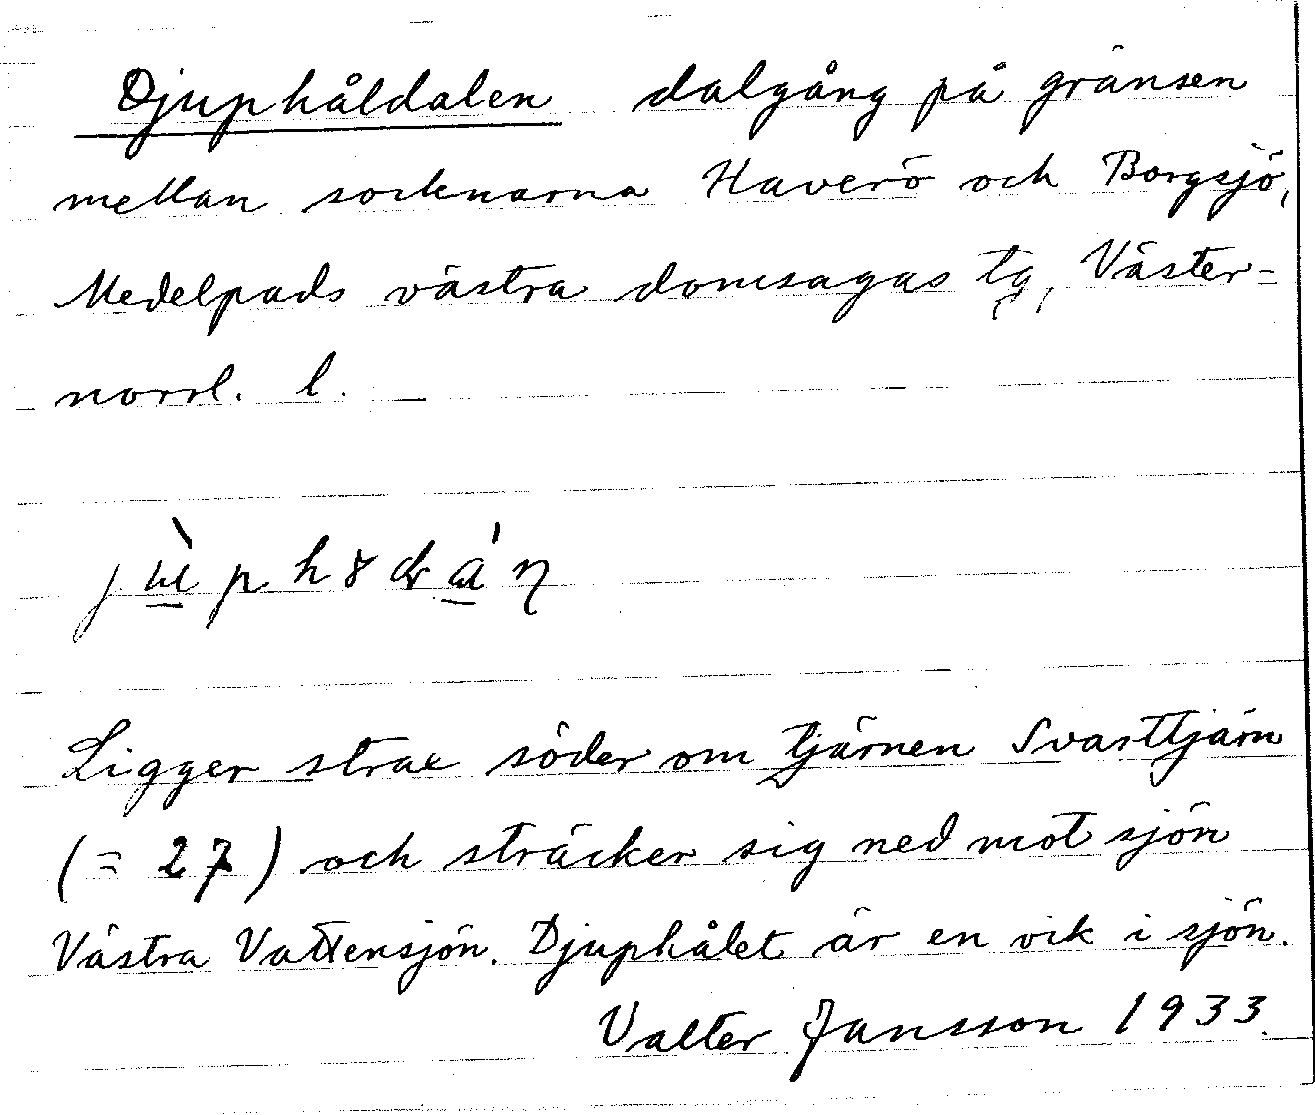 Djuphåldalen dalgång på gränsen
mellan socknarna Haverö och Borgsjö,
Medelpads västra domsagas tg, Väster-
norrl. l. —
Ligger strax söder om tjärnen Svarttjärn
(= 27) och sträcker sig ned mot sjön
Västra Vattensjön. Djuphålet är en vik i sjön.
Valter Jansson 1933.